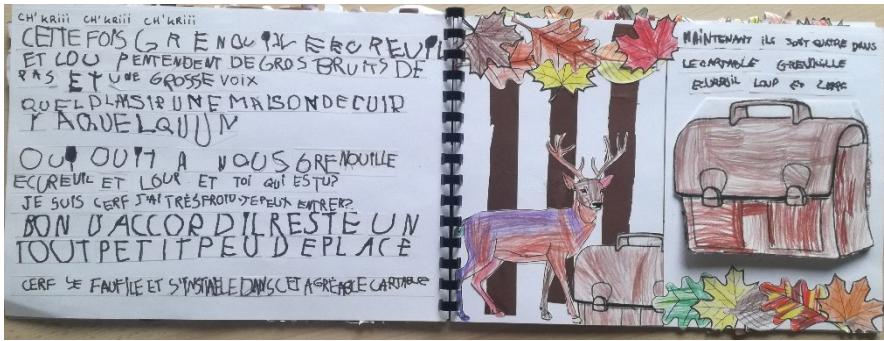 CH'KRiii CH'KRiii CH'KRiii
CETTE FOIS GRENOUILLE ECUREUIL
ET LOU P ENTENDENT DE GROS BRUITS DE
PAS ET UNE GROSSE VOIX
QUEL PLAISIR UNE MAISON DE CUIR
Y A QUELQUUN
OUI OUI Y A NOUS GRENOUILLE
ECUREUIL ET LOUP ET TOI QUI ES TU?
JE SUIS CERF J'AI TRÉS FROID JE PEUX ENTRER?
BON D'ACCORD IL RESTE UN
TOUT PETIT PEU DE PLACE
CERF SE FAUFILE ET S'INSTALLE DANS CET AGRÉABLE CARTABLE
MAINTENANT ILS SONT QUATRE DANS
LE CARTABLE GRENOUILLE
ECUREUIL LOUP ET CERF